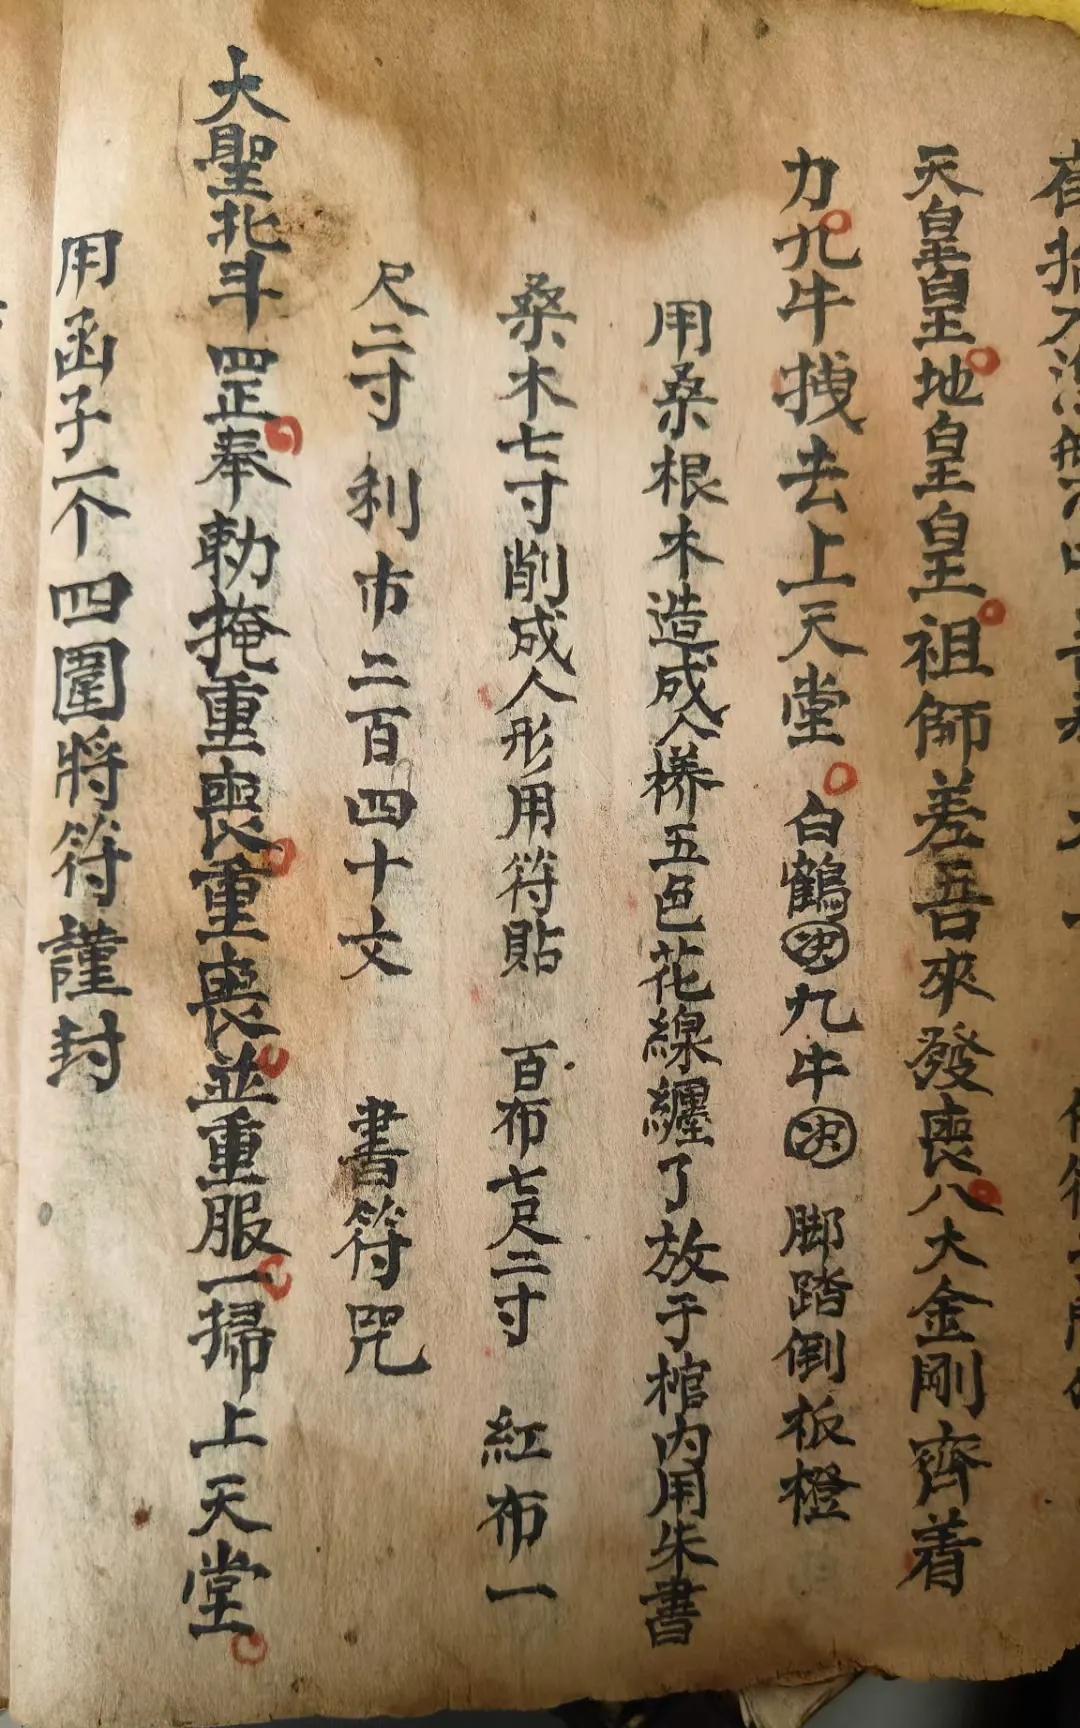 天皇皇地皇皇祖師差吾來發喪八大金剛齊着
力九牛拽去上天堂 白鶴決九牛決 脚踏倒板橙
用桑根木造成人樣五色花線纏了放于棺内用朱書
桑木七寸削成人形用符貼 百布七尺二寸 紅布一
尺二寸 利市二百四十文 書符咒
大聖北斗罡正奉勅掩重喪重喪並重服一掃上天堂
用函子一个四圍將符謹封